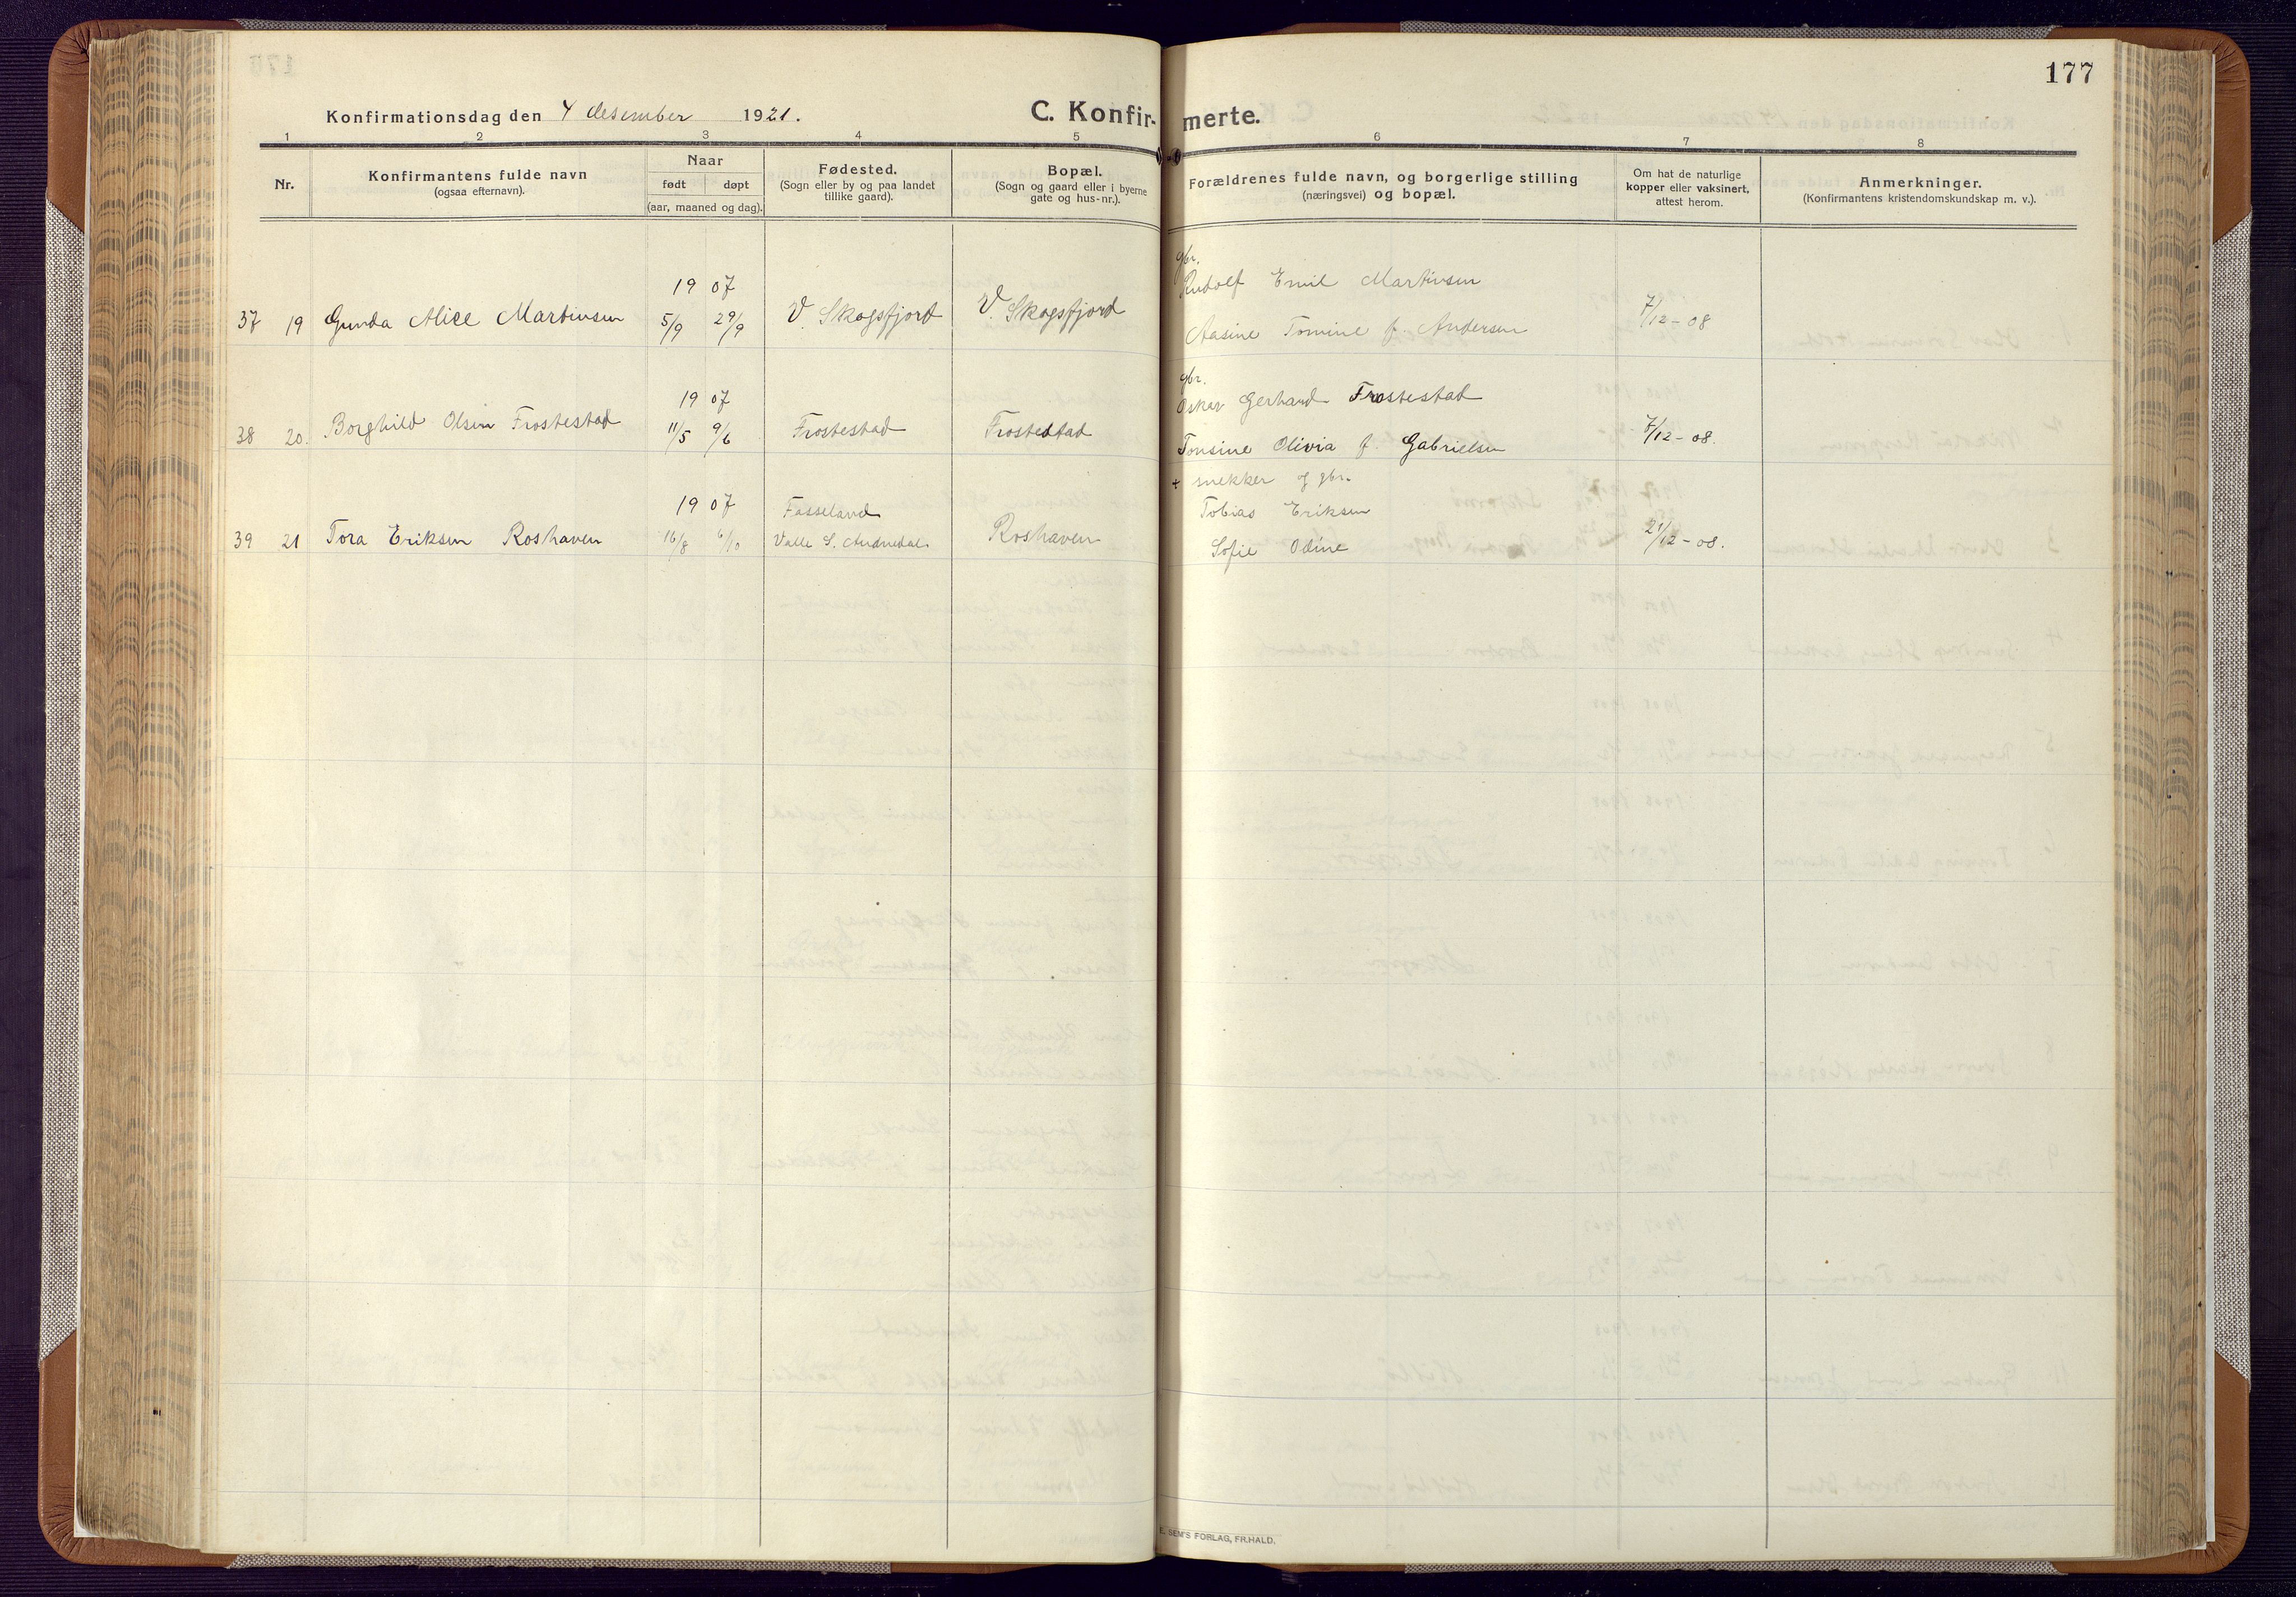 177
Konfirmationsdag den 4 desember 1921.
C. Konfir-merte.
1 2 3 4 5 6 7 8
Nr.
Konfirmantens fulde navn
(ogsaa efternavn).
Naar
født døpt
(aar, maaned og dag).
Fødested.
(Sogn eller by og paa landet
tillike gaard).
Bopæl.
(Sogn og gaard eller i byerne
gate og hus-nr.).
Forældrenes fulde navn, og borgerlige stilling
(næringsvei) og bopæl.
Om hat de naturlige
kopper eller vaksinert,
attest herom.
Anmerkninger.
(Konfirmantens kristendomskundskap m. v.).
gbr.
19 07 Rudolf Emil Martinsen
37 19 Gunda Alice Martinsen 5/9 29/9 V. Skogsfjord V. Skogsfjord Aasine Tomine f. Andersen 7/12-08
gbr.
19 07 Oskar Gerhard Frostestad
38 20. Borghild Olsen Frostestad 11/5 9/6 Frostestad Frostestad Tonsine Olivia f. Gabrielsen 7/12-08.
+ snekker og gbr.
19 07 Fasseland Tobias Eriksen
39 21 Tora Eriksen Roshaven 16/8 6/10 Valle S. Audnedal. Roshaven Sofie Odine 21/12-08.
E. SEM'S FORLAG, FR.HALD.